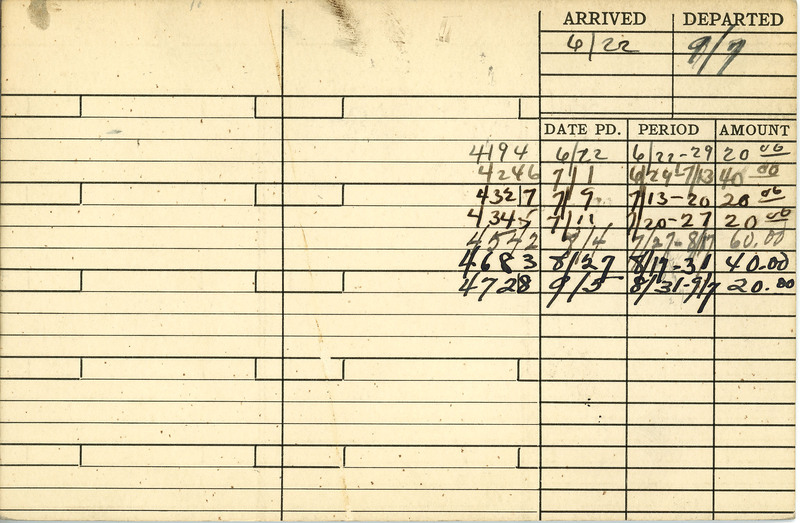 ARRIVED DEPARTED
6/22 9/7
DATE PD. PERIOD AMOUNT
4194 6/22 6/22-29 20 00
4246 7/1 6/29-7/13 40 00
4327 7/9 7/13-20 20 00
4345 7/11 7/20-27 20 00
4542 8/4 7/27-8/17 60.00
4683 8/27 8/17-31 40.00
4728 9/5 8/31-9/7 20.00